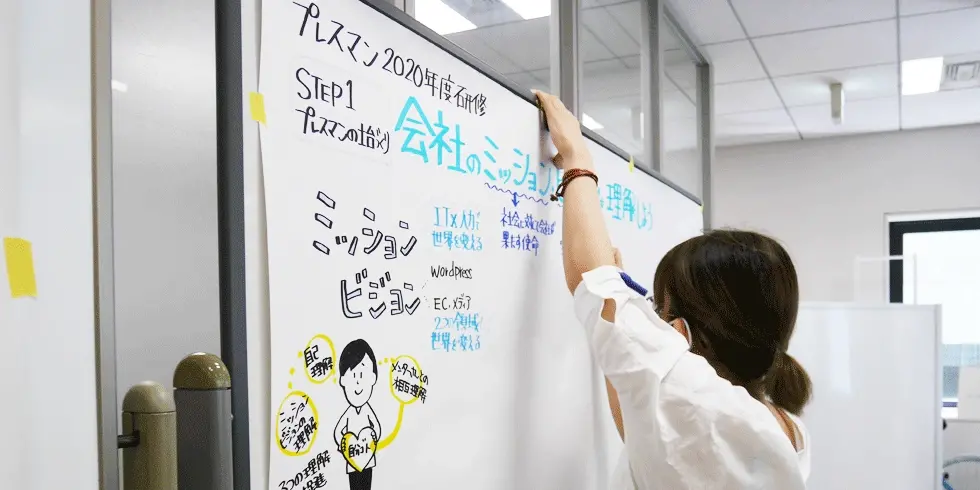 プレスマン2020年度研修
STEP1
プレスマンの土台づくり
会社のミッション
理解しよう
ミッション
ITX人力で
世界を変える
果たす使命
ビジョン
wordpress
EC.メディア
2つの領域で
世界を変える
自己
理解
メンターさんとの
相互理解
ミッション
ビジョンの
理解
自分ゴト
3つの理解